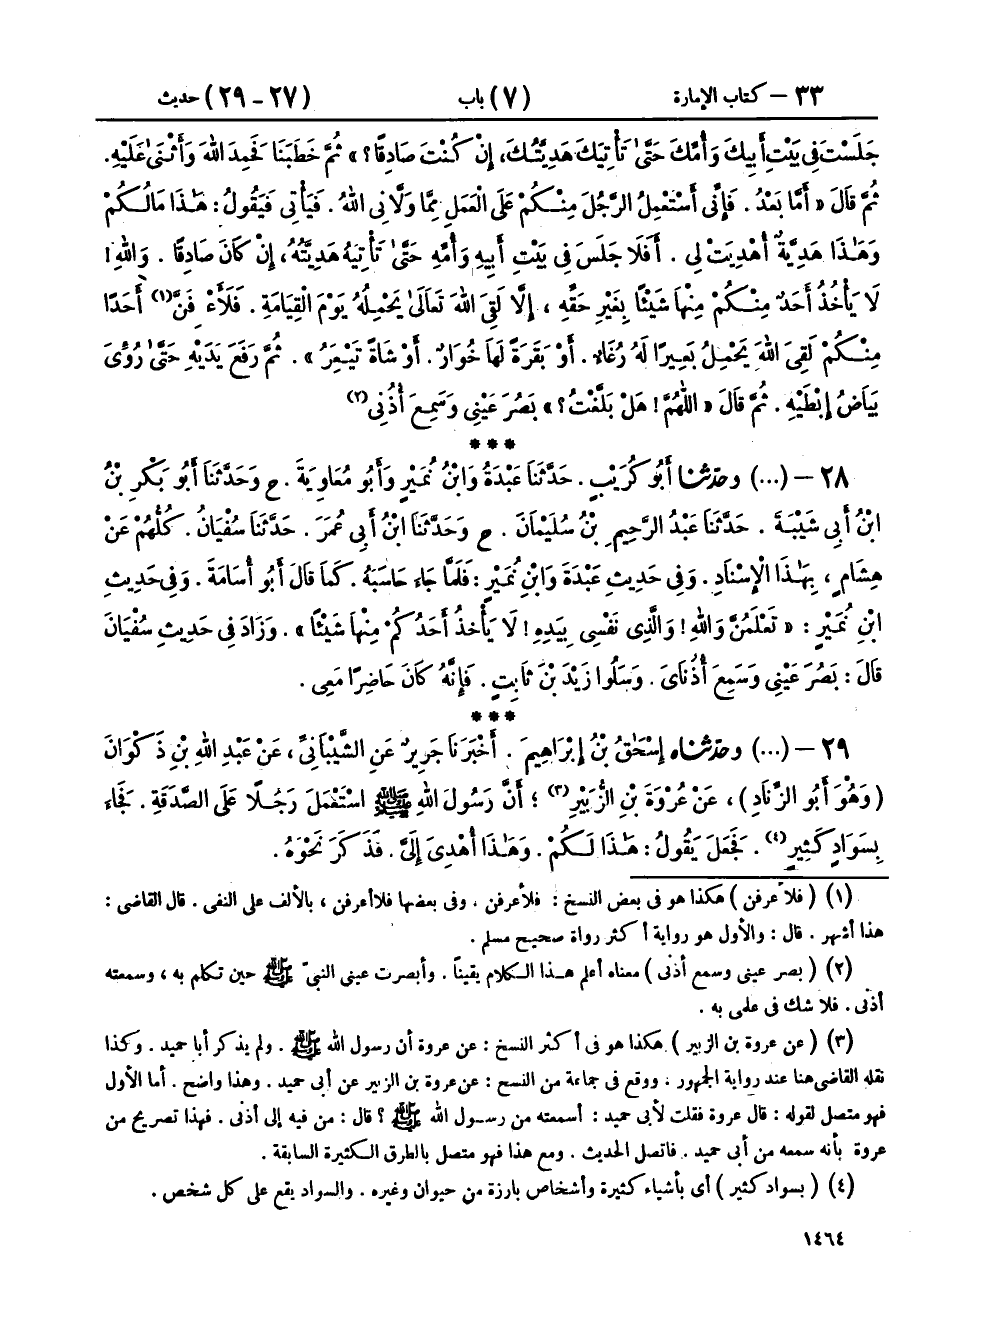 ٣٣ – كتاب الإمارة (٧) باب (٢٧ – ٢٩) حديث
جَلَسْتَ فِى بَيْتِ أَبِيكَ وَأُمِّكَ حَتَّىٰ تَأْتِيَكَ هَدِيَّتُكَ، إِنْ كُنْتَ صَادِقًا؟ » ثُمَّ خَطَبَنَا فَحَمِدَ اللهَ وَأَثْنَىٰ عَلَيْهِ.
ثُمَّ قَالَ « أَمَّا بَعْدُ . فَإِنِّى أَسْتَعْمِلُ الرَّجُلَ مِنْكُمْ عَلَى الْعَمَلِ مِمَّا وَلَّانِى اللهُ . فَيَأْتِى فَيَقُولُ : هَٰذَا مَالُكُمْ
وَهَٰذَا هَدِيَّةٌ أُهْدِيَتْ لِى . أَفَلَا جَلَسَ فِى بَيْتِ أَبِيهِ وَأُمِّهِ حَتَّىٰ تَأْتِيَهُ هَدِيَّتُهُ ، إِنْ كَانَ صَادِقًا . وَاللهِ !
لَا يَأْخُذُ أَحَدٌ مِنْكُمْ مِنْهَا شَيْئًا بِغَيْرِ حَقِّهِ ، إِلَّا لَقِىَ اللهَ تَعَالَىٰ يَحْمِلُهُ يَوْمَ الْقِيَامَةِ . فَلَأَعْرِفَنَّ(١) أَحَدًا
مِنْكُمْ لَقِىَ اللهَ يَحْمِلُ بَعِيرًا لَهُ رُغَاءٌ . أَوْ بَقَرَةً لَهَا خُوَارٌ . أَوْ شَاةً تَيْعِرُ » . ثُمَّ رَفَعَ يَدَيْهِ حَتَّىٰ رُؤِىَ
بَيَاضُ إِبْطَيْهِ . ثُمَّ قَالَ « اللّٰهُمَّ ! هَلْ بَلَّغْتُ ؟ » بَصُرَ عَيْنِى وَسَمِعَ أُذُنِى(٢)
***
٢٨ – (...) وحدثنا أَبُو كُرَيْبٍ . حَدَّثَنَا عَبْدَةُ وَابْنُ نُمَيْرٍ وَأَبُو مُعَاوِيَةَ . ح وَحَدَّثَنَا أَبُو بَكْرِ بْنُ
ابْنُ أَبِى شَيْبَةَ . حَدَّثَنَا عَبْدُ الرَّحِيمِ بْنُ سُلَيْمَانَ . ح وَحَدَّثَنَا ابْنُ أَبِى عُمَرَ . حَدَّثَنَا سُفْيَانُ . كُلُّهُمْ عَنْ
هِشَامٍ ، بِهَٰذَا الْإِسْنَادِ . وَفِى حَدِيثِ عَبْدَةَ وَابْنِ نُمَيْرٍ : فَلَمَّا جَاءَ حَاسَبَهُ . كَمَا قَالَ أَبُو أُسَامَةَ . وَفِى حَدِيثِ
ابْنِ نُمَيْرٍ : « تَعْلَمُنَّ وَاللهِ ! وَالَّذِى نَفْسِى بِيَدِهِ ! لَا يَأْخُذُ أَحَدُكُمْ مِنْهَا شَيْئًا » . وَزَادَ فِى حَدِيثِ سُفْيَانَ
قَالَ : بَصُرَ عَيْنِى وَسَمِعَ أُذُنَاىَ . وَسَلُوا زَيْدَ بْنَ ثَابِتٍ . فَإِنَّهُ كَانَ حَاضِرًا مَعِى .
***
٢٩ – (...) وحدثناه إِسْحَٰقُ بْنُ إِبْرَاهِيمَ . أَخْبَرَنَا جَرِيرٌ عَنِ الشَّيْبَانِىِّ ، عَنْ عَبْدِ اللهِ بْنِ ذَكْوَانَ
( وَهُوَ أَبُو الزِّنَادِ ) ، عَنْ عُرْوَةَ بْنِ الزُّبَيْرِ(٣) ؛ أَنَّ رَسُولَ اللهِ ﷺ اسْتَعْمَلَ رَجُلًا عَلَى الصَّدَقَةِ . فَجَاءَ
بِسَوَادٍ كَثِيرٍ(٤) . فَجَعَلَ يَقُولُ : هَٰذَا لَكُمْ . وَهَٰذَا أُهْدِىَ إِلَىَّ . فَذَكَرَ نَحْوَهُ .
(١) ( فلأعرفن ) هكذا هو فى بعض النسخ : فلأعرفن . وفى بعضها فلاأعرفن ، بالألف على النفى . قال القاضى :
هذا أشهر . قال : والأول هو رواية أكثر رواة صحيح مسلم .
(٢) ( بصر عينى وسمع أذنى ) معناه أعلم هذا الكلام يقيناً . وأبصرت عينى النبىّ ﷺ حين تكلم به ، وسمعته
أذنى . فلا شك فى علمى به .
(٣) ( عن عروة بن الزبير ) هكذا هو فى أكثر النسخ : عن عروة أن رسول الله ﷺ . ولم يذكر أبا حميد . وكذا
نقله القاضى هنا عند رواية الجمهور . ووقع فى جماعة من النسخ : عن عروة بن الزبير عن أبى حميد . وهذا واضح . أما الأول
فهو متصل لقوله : قال عروة فقلت لأبى حميد : أسمعته من رسول الله ﷺ ؟ قال : من فيه إلى أذنى . فهذا تصريح من
عروة بأنه سمعه من أبى حميد . فاتصل الحديث . ومع هذا فهو متصل بالطرق الكثيرة السابقة .
(٤) ( بسواد كثير ) أى بأشياء كثيرة وأشخاص بارزة من حيوان وغيره . والسواد يقع على كل شخص .
١٤٦٤